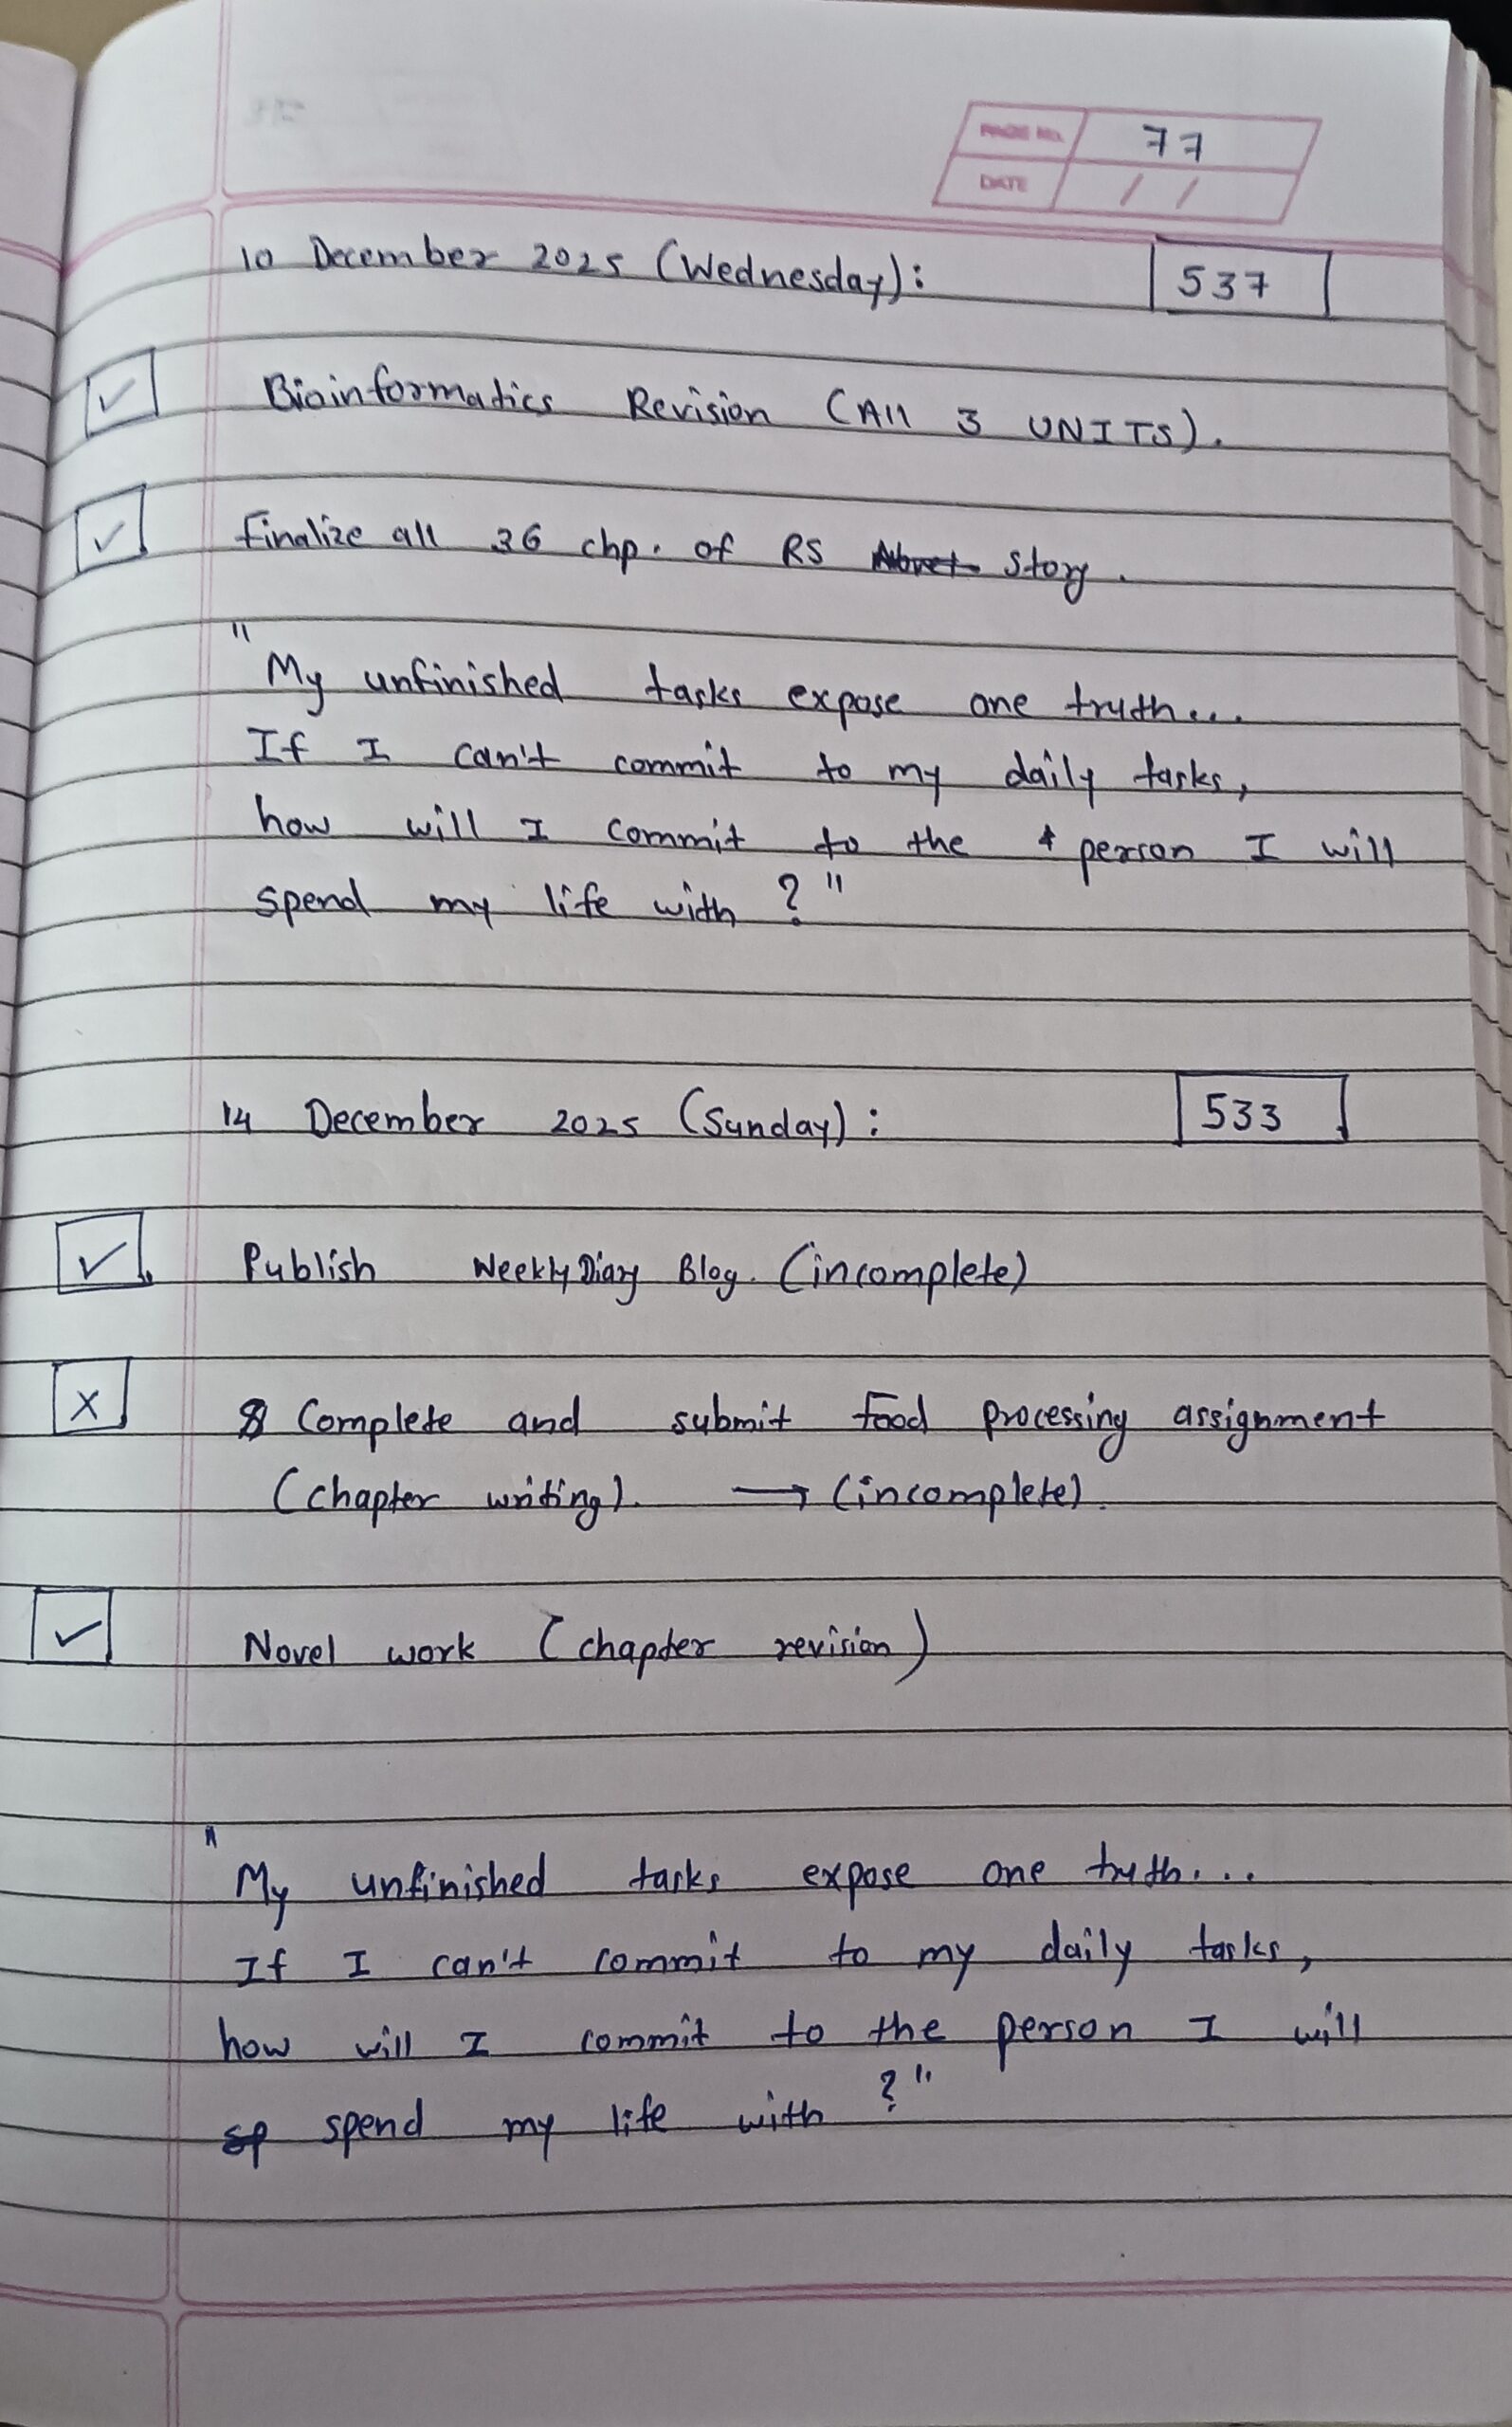 PAGE NO. 77
DATE / /
10 December 2025 (Wednesday): 537
✓ Bioinformatics Revision (All 3 UNITS).
✓ Finalize all 36 chp. of RS Novel story.
"My unfinished tasks expose one truth...
If I can't commit to my daily tasks,
how will I commit to the person I will
spend my life with?"
14 December 2025 (Sunday): 533
✓ Publish Weekly Diary Blog. (incomplete)
X Complete and submit Food processing assignment
(chapter writing). → (incomplete).
✓ Novel work (chapter revision)
"My unfinished tasks expose one truth...
If I can't commit to my daily tasks,
how will I commit to the person I will
sp spend my life with?"